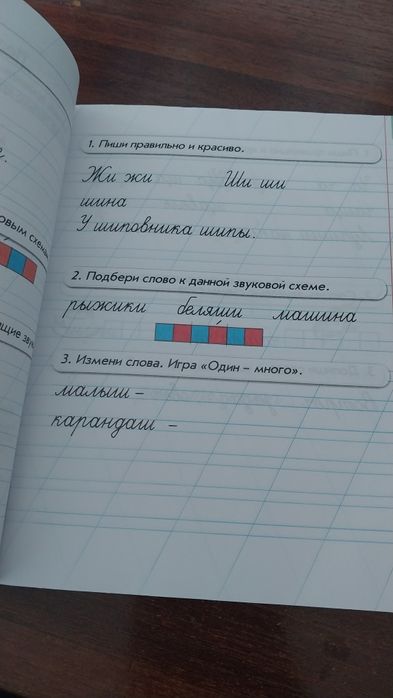 е.
овым схемам
щие зву
1. Пиши правильно и красиво.
Жи жи Ши ши
шина
У шиповника шипы.
2. Подбери слово к данной звуковой схеме.
рыжики беляши машина
3. Измени слова. Игра «Один – много».
малыш –
карандаш –